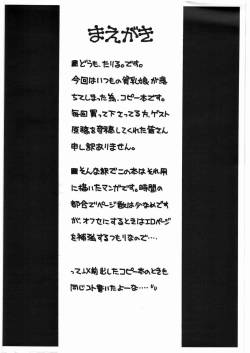 まえがき
■どうも、たりる。です。
今回はいつもの貧乳娘が落
ちてしまった為、コピー本です。
毎回買って下さってる方、ゲスト
原稿を寄稿してくれた皆さん
申し訳ありません。
■そんな訳でこの本はそれ用
に描いたマンガです。時間の
都合でページ数は少なめです
が、オフセにするときはエロページ
を補強するつもりなので‥‥
って以前出したコピー本のときも
同じコト書いたよーな‥‥